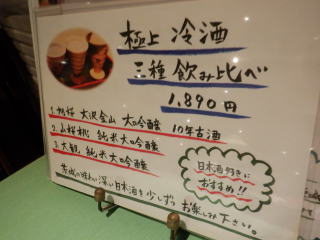 極上 冷酒
三種 飲み比べ
1,890円
1. 桃桜 大沢金山 大吟醸 10年古酒
2. 山桜桃 純米大吟醸
3. 大観 純米大吟醸
日本酒好きに
おすすめ!!
茨城の味わい深い日本酒を少しずつ お楽しみ下さい。